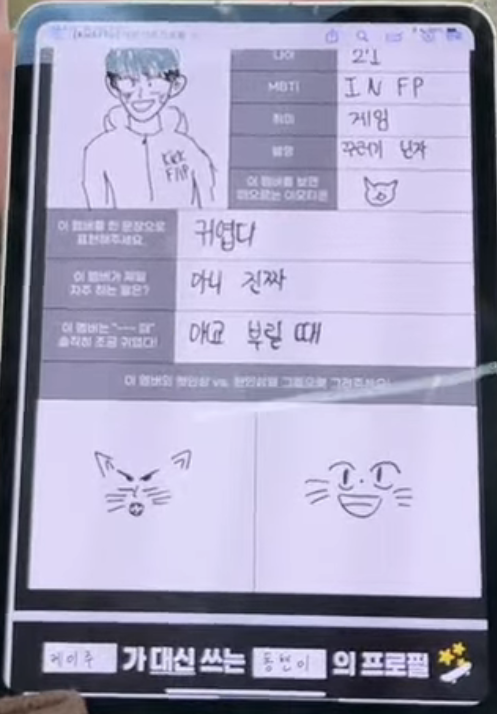 나이 21
MBTI INFP
취미 게임
별명 꾸러기 닌자
이 멤버를 보면
떠오르는 이모티콘
KicK
FliP
이 멤버를 한 문장으로
표현해주세요.
귀엽다
이 멤버가 제일
자주 하는 말은?
아니 진짜
이 멤버는 "~~~ 때"
솔직히 조금 귀엽다!
애교 부릴 때
이 멤버의 첫인상 vs. 현인상을 그림으로 그려주세요!
케이주 가 대신 쓰는 동현이 의 프로필